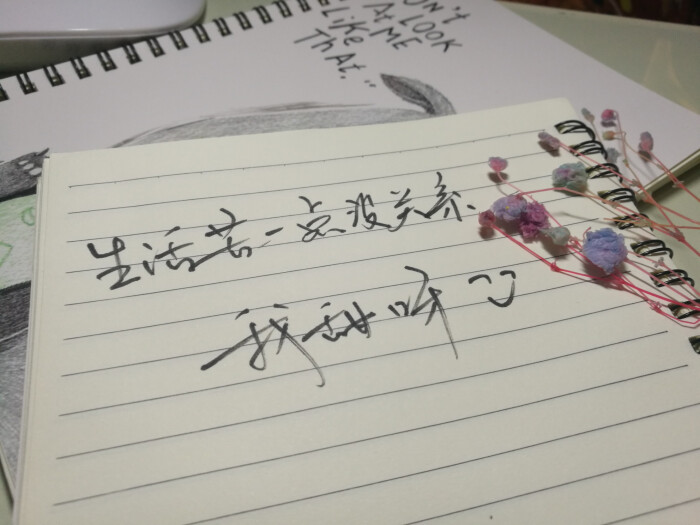 LOOK
At ME
Like
ThAt..
生活苦一点没关系
我甜呀